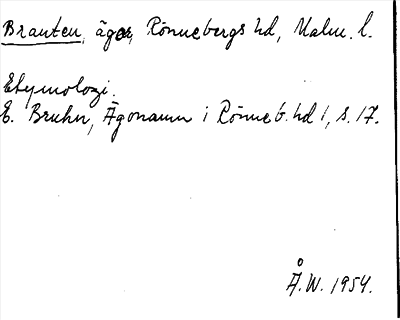 Branten, äger, Rönnebergs hd, Malm. l.
Etymologi.
E. Bruhn, Ägonamn i Rönneb. hd 1, s. 17.
Å.W. 1954.